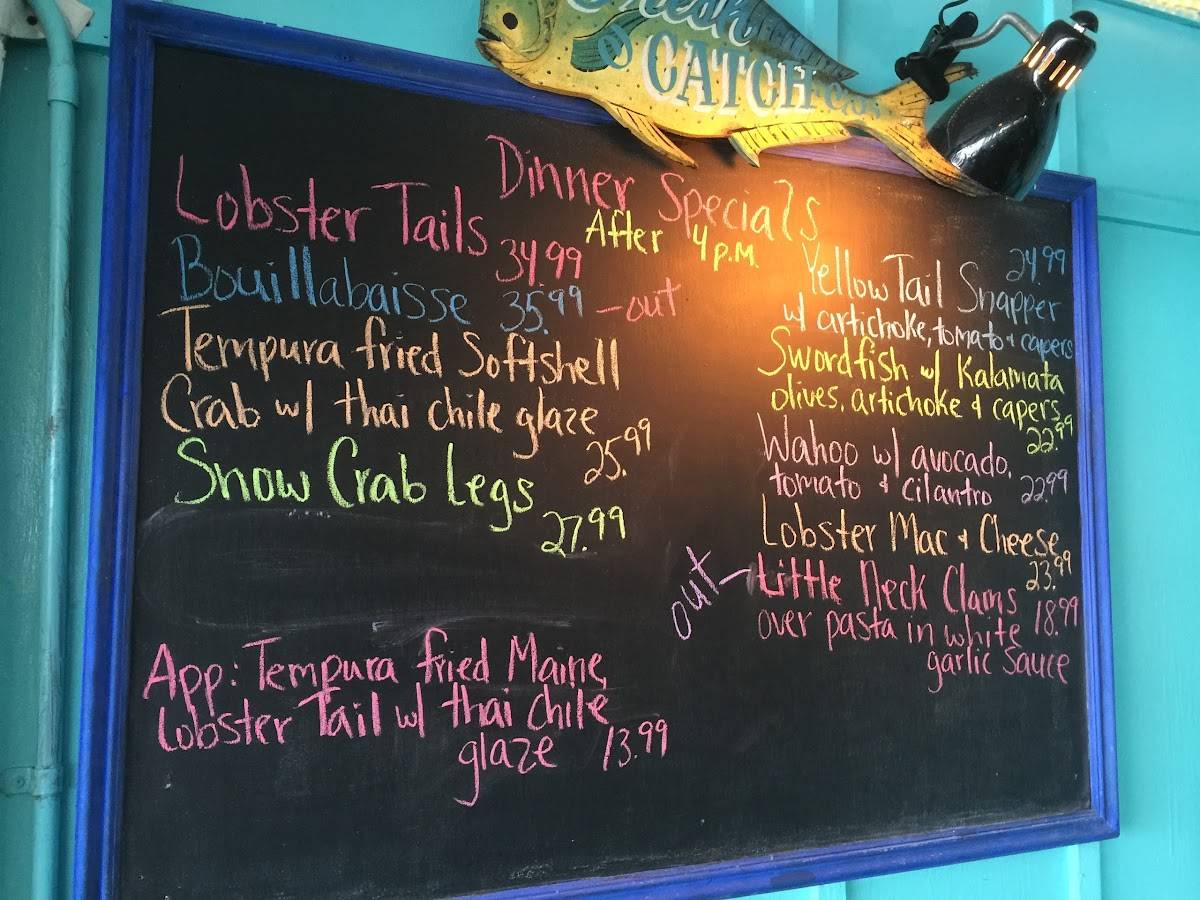 Fresh
CATCH
Dinner Specials
After 4 p.m.
Lobster Tails 34.99
Bouillabaisse 35.99 - out
Tempura fried Softshell
Crab w/ thai chile glaze
25.99
Snow Crab Legs
27.99
App: Tempura fried Maine
Lobster Tail w/ thai chile
glaze 13.99
24.99
Yellow Tail Snapper
w/ artichoke, tomato + capers
Swordfish w/ Kalamata
olives, artichoke + capers
22.99
Wahoo w/ avocado,
tomato + cilantro 22.99
Lobster Mac + Cheese
23.99
out - Little Neck Clams
over pasta in white 18.99
garlic sauce